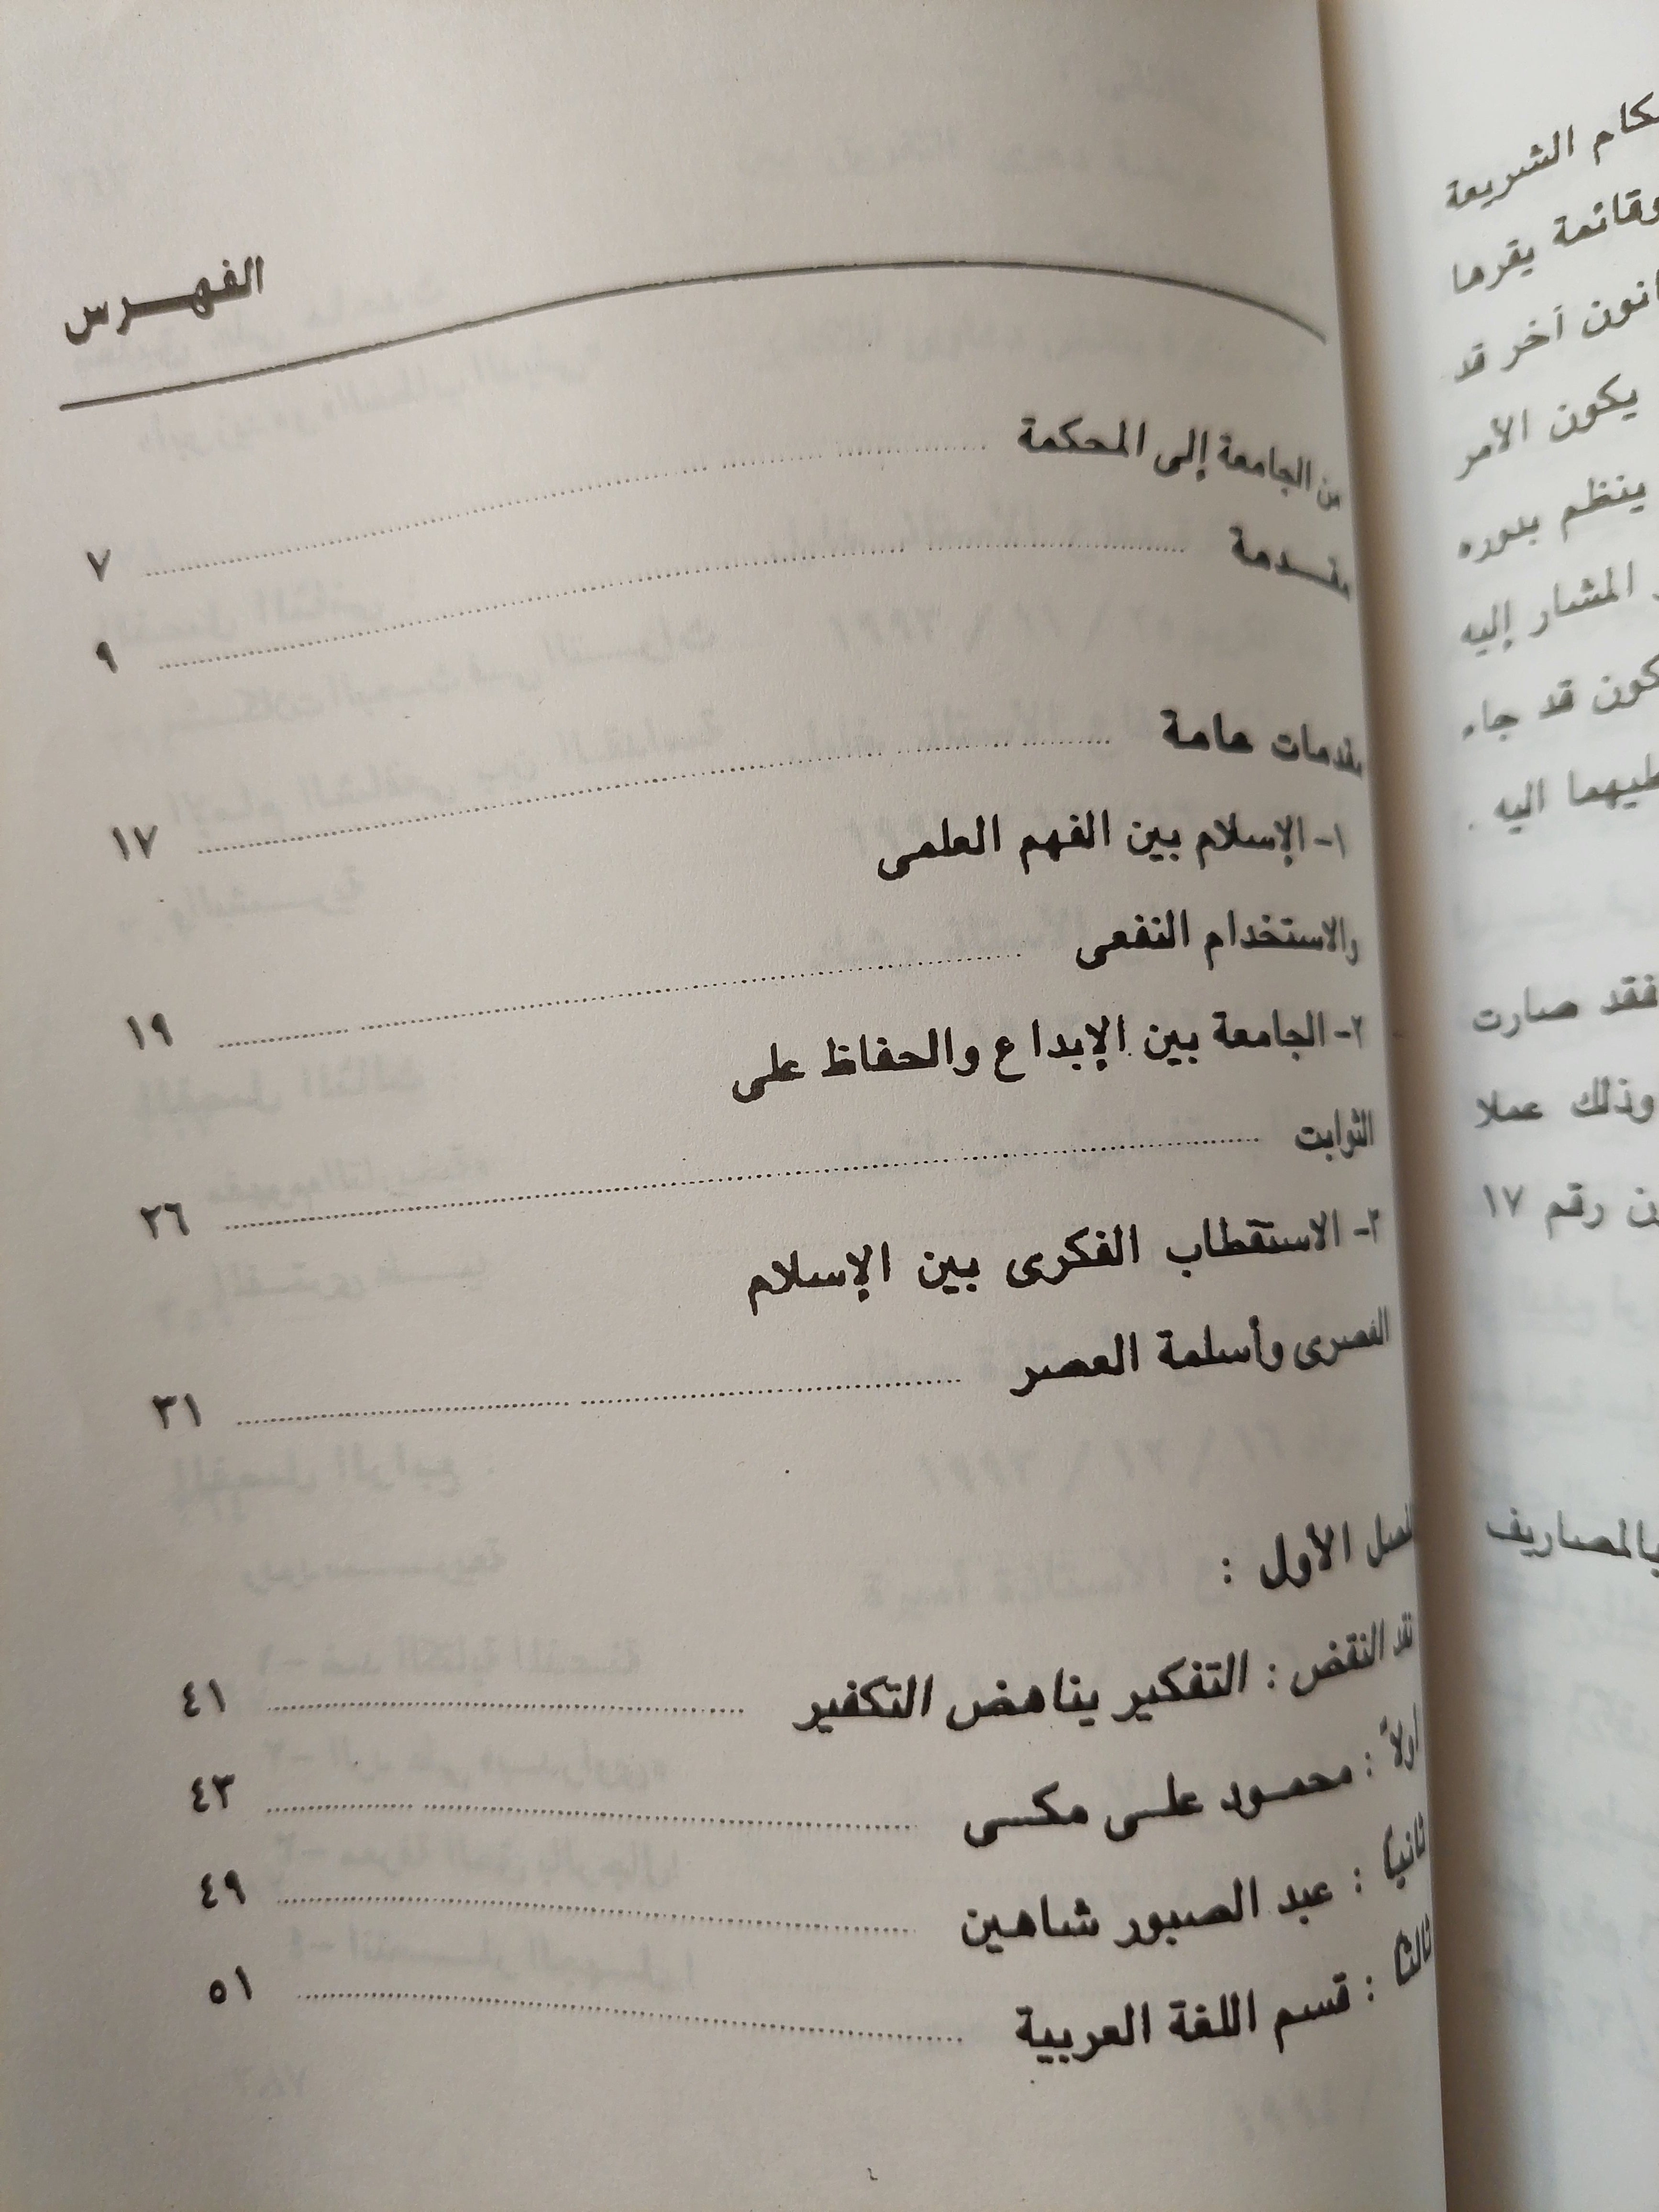 الفهرس
من الجامعة إلى المحكمة ٧
مقدمة ٩
مقدمات عامة ١٧
١- الإسلام بين الفهم العلمى
والاستخدام النفعى ١٩
٢- الجامعة بين الإبداع والحفاظ على
الثوابت ٢٦
٣- الاستقطاب الفكرى بين الإسلام
العصرى وأسلمة العصر ٣١
الفصل الأول :
نقد النقض : التفكير يناهض التكفير ٤١
أولاً : محمود على مكى ٤٣
ثانياً : عبد الصبور شاهين ٤٩
ثالثاً : قسم اللغة العربية ٥١
الشريعة
وقائعة يقرها
آخر قد
يكون الأمر
ينظم بدوره
المشار إليه
قد جاء
اليه .
فقد صارت
وذلك عملا
رقم ١٧
بالمصاريف